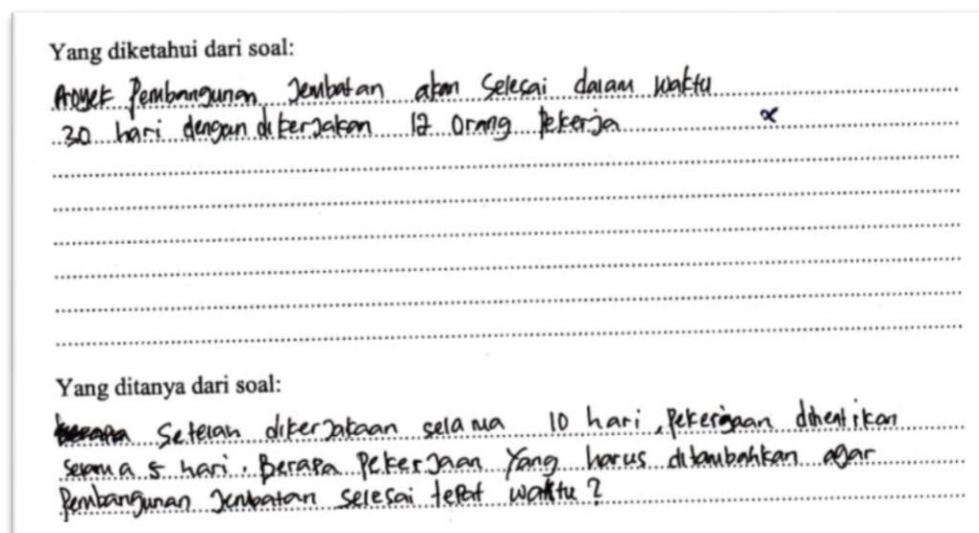 Yang diketahui dari soal:
Proyek Pembangunan Jembatan akan Selesai dalam waktu
30 hari dengan dikerjakan 12 orang pekerja
Yang ditanya dari soal:
Setelah dikerjakaan selama 10 hari, Pekerjaan dihentikan
selama 5 hari. Berapa Pekerjaan Yang harus ditambahkan agar
Pembangunan Jembatan selesai tepat waktu?